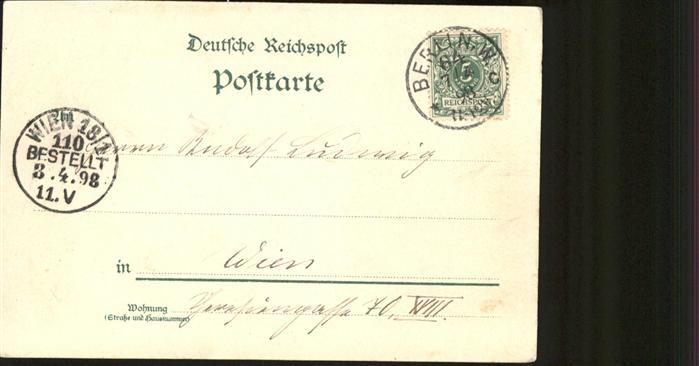 Deutsche Reichspost
Postkarte
BERLIN W.
64
98
5
REICHSPOST
WIEN 18/1
110
BESTELLT
8.4.98
11.V
An
Herrn Rudolf Ludwig
in Wien
Wohnung
(Straße und Hausnummer)
70, XVIII.